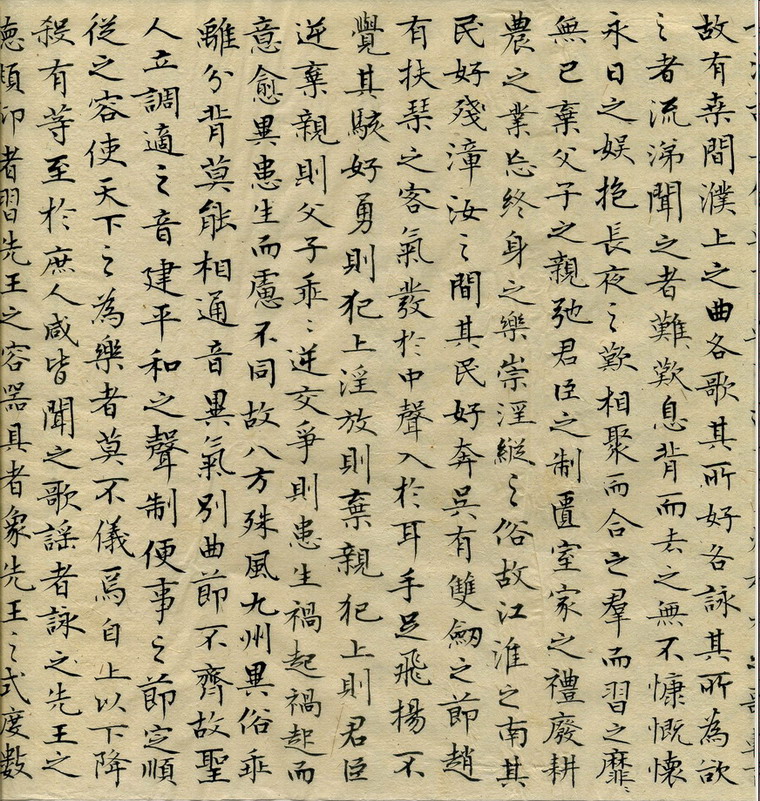 故有桒間濮上之曲各歌其所好各詠其所為欲
之者流涕聞之者難歎息背而去之無不慷慨懷
永日之娱抱長夜之歎相聚而合之羣而習之靡〻
無已棄父子之親弛君臣之制匱室家之禮廢耕
農之業忘終身之樂崇淫縱之俗故江淮之南其
民好殘漳汝之間其民好奔吳有雙劒之節趙
有扶琹之客氣發於中聲入於耳手足飛揚不
覺其駭好勇則犯上淫放則棄親犯上則君臣
逆棄親則父子乖〻逆交爭則患生禍起禍起而
意愈異患生而慮不同故八方殊風九州異俗乖
離分背莫能相通音異氣别曲節不齊故聖
人立調適之音建平和之聲制便事之節定順
從之容使天下之為樂者莫不儀焉自上以下降
殺有等至於庶人咸皆聞之歌謡者詠之先王之
徳頫仰者習先王之容器具者象先王之式度數